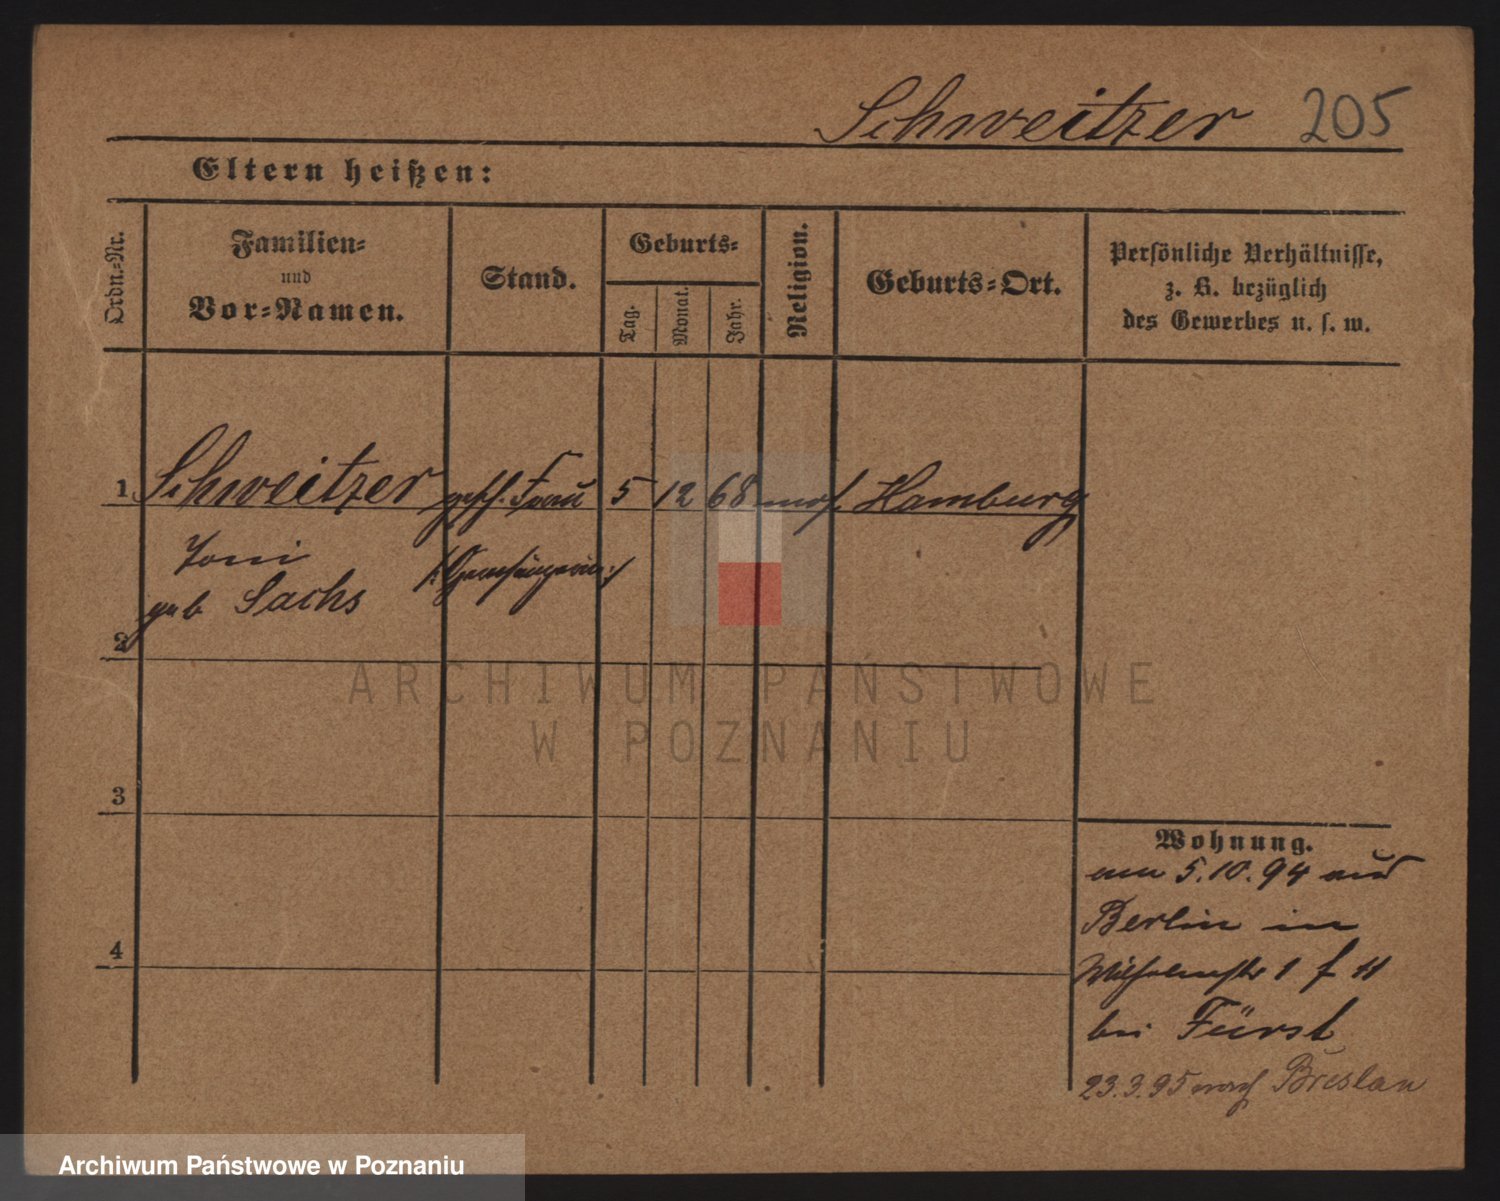 Schweitzer 205
Eltern heißen:
Ordn.-Nr.
Familien-
und
Vor-Namen.
Stand.
Geburts-
Tag.
Monat.
Jahr.
Religion.
Geburts-Ort.
Persönliche Verhältnisse,
z. B. bezüglich
des Gewerbes u. s. w.
1 Schweitzer gesch. Frau 5 12 68 mos. Hamburg
Toni
geb Sachs
2
3
4
Wohnung.
am 5.10.94 aus
Berlin in
Wilhelmstr 1 f 11
bei Fürst
23.3.95 nach Breslau
ARCHIWUM PAŃSTWOWE
W POZNANIU
Archiwum Państwowe w Poznaniu